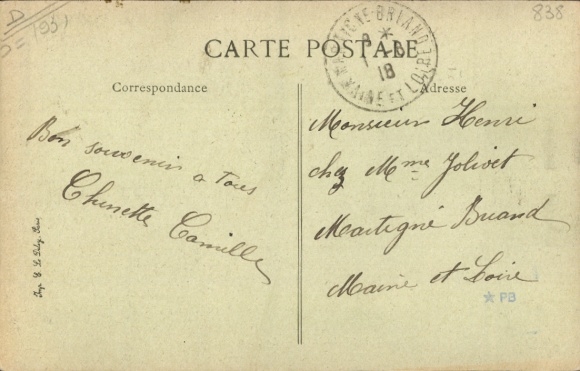 D
838
CARTE POSTALE
MARTIGNÉ-BRIAND
18
MAINE ET LOIRE
Correspondance
Adresse
Bon souvenir a tous
Camille
Monsieur Henri
chez Mme Jolivet
Martigné Briand
Maine et Loire
* PB